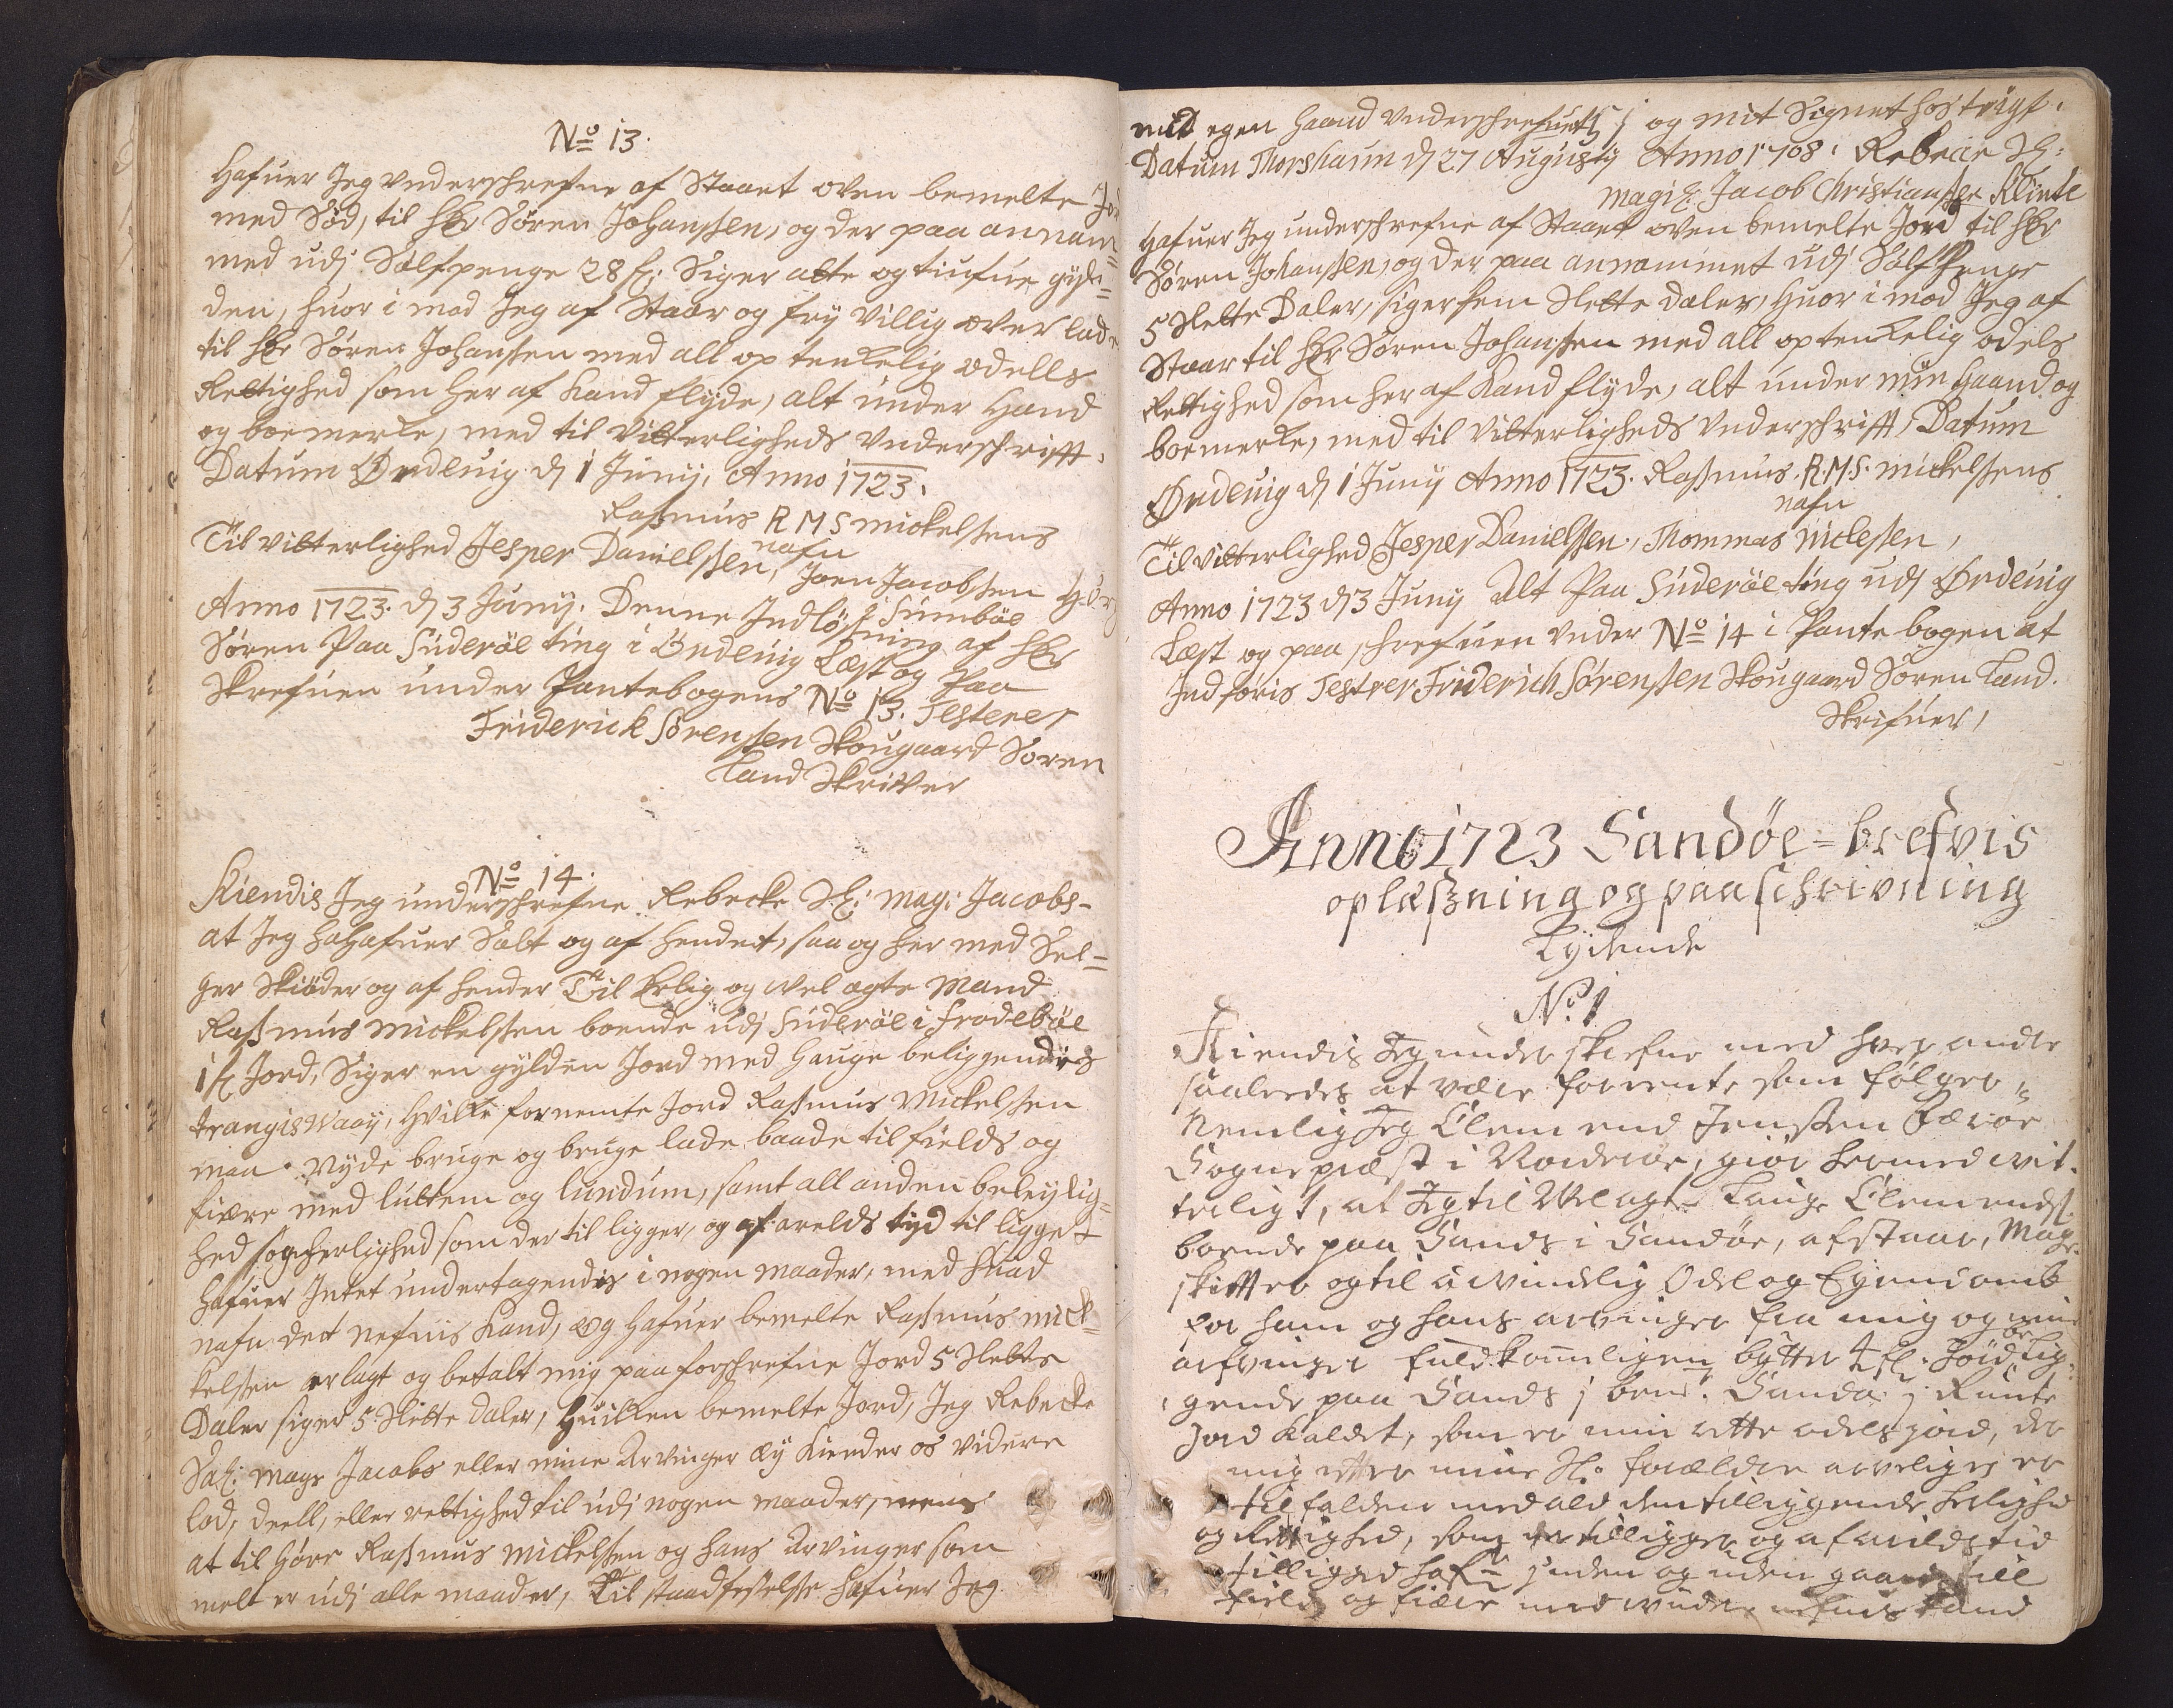 No 13.
Hafuer Jeg vnderschrefne af Staaet oven bemelte Jord
med Sød, til Hr Søren Johanssen, og der paa annam=
med udj Sølfpenge 28 fl: Siger atte og tiufue gyl=
den, huor i mod Jeg af Staar og frj villig over lade
til Hr Søren Johanssen med all optenkelig odells
Rettighed som her af kand flyde, alt under Hand
og boemerke, med til Vitterligheds Vnderschrifft.
Datum Ørdeuig dj 1 Junij, Anno 1723.
Rasmus R M S Mickelsens
nafn
Til vitterlighed Jesper Danielssen, Joen Jacobssen
i Sumbøe
Anno 1723. dj 3 Junij. Denne Indløssning af Hr
Søren Paa Suderøe ting i Ørdeuig Læst og Paa
Skrefuen under Pantebogens No 13. Testerer
Friderick Sørenssen Skougaard Soren
Land Skriver
No 14.
Kiendis Jeg underschrefne Rebecke Sl: Mag: Jacobs-
at Jeg hahafuer Sælt og af hendet, saa og her med Sel=
ger Skiøder og af hender Til Erlig og vel agte Mand
Rasmus Mickelssen boende udj Suderøe i frodebøe
1 fl Jord, Siger en gylden Jord med Hauge beliggendis
Trangiswaaij, Hvilke fornemte Jord Rasmus Mickelssen
maa Nyde bruge og bruge lade baade til fields og
fiære med luttem og lundum, samt all anden beleylig=
hed sogherlighed som der til ligger, og af arelds tyd til ligget
Hafuer Intet undertagendis i nogen maader, med huad
nafn det nefnis kand, og Hafuer bemelte Rasmus mick=
kelssen erlagt og betalt mig paa forschrefne Jord 5 Slette
Daler siger 5 Slette daler, Huilken bemelte Jord, Jeg Rebecke
Sal: Mags Jacobs eller mine Arvinger ey kiender os videre
lod, deell, eller rettighed til udj nogen maader, mens
at til Høre Rasmus Mickelssen og hans Arvinger som
melt er udj alle maader, Til staadfestelsse hafuer Jeg
med egen Haand vnderschrefuet og mit Signet hos trÿgt.
Datum Thorshaun dj 27 Augustij Anno 1708. Rebecce Sl:
Magis: Jacob Christianssen Klinte
Hafuer Jeg underschrefne af Staaet oven bemelte Jord til Hr
Søren Johanssen, og der paa annammet udj Sølf Penge
5 Slette Daler, siger fem Slette daler, Huor i mod Jeg af
Staar til Hr Søren Johanssen med all optenkelig odels
Rettighed som her af kand flyde, alt under min Haand og
boemerke, med til Vitterligheds Vnderschrifft, Datum
Ørdeuig dj 1 Junij Anno 1723. Rasmus R.M.S. Mickelsens
nafn
Til vitterlighed Jesper Danielssen, Thommas Niclessen,
Anno 1723 dj 3 Junij Alt Paa Suderøe ting udj Ørdeuig
Læst og paa schrefuen under No 14 i Pante bogen at
Indføris Testerer Friderich Sørenssen Skougaard Soren Land.
Skrifuer,
Anno 1723 Sandøe=brefvis
oplæsning og paaschrivning
Lydende
No 1
Kiendis Jeg underskrefne med hver andre
saaledes at være forrente som følger,
Nemlig Jeg Clemend Jenssen Færøe
Sognepræst i Norderøe, giør hermed vit-
terligt, at Jeg til Velagte Lauge Clemends:
boende paa Sands i Sandøe, afstaar, Mage-
skiffter og til uvindelig Odel og Eyendomb
for ham og hans arvinger fra mig og mine
arfvinger fuldkommeligen bytter 4 fl. Jord lig-
gende paa Sands j bem: Sands j Runte
Jord kaldet, som er min rette odels jord, der
mig efter mine Sl. forældre arveligen er
tilfalden med ald den tilliggende herlighed
og Rettighed, som der tilligger og af arilds tid
tilligged hafr jnden og uden gaards till
field og fiære med viide nefnes kand